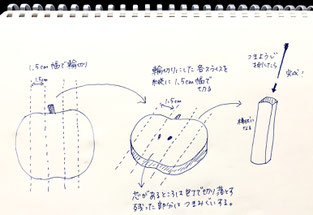 1.5cm幅で輪切り
1.5cm
輪切りにした各スライスを
1.5cm幅で
切る
1.5cm
つまようじ
を刺したら
完成!
棒状に
なる
芯があるところは包丁で切り落とす
残った部分はつまみぐいする。